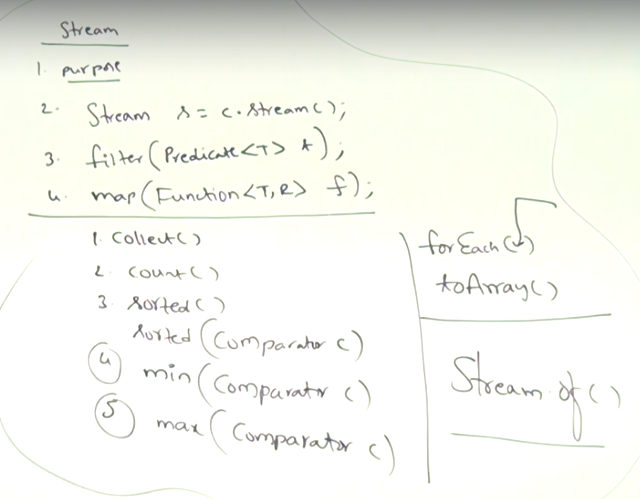 Stream
1. purpose
2. Stream s = c.stream();
3. filter(Predicate<T> t);
4. map(Function<T,R> f);
1. Collect()
2. Count()
3. sorted()
sorted(Comparator c)
4 min(Comparator c)
5 max(Comparator c)
forEach()
toArray()
Stream.of()